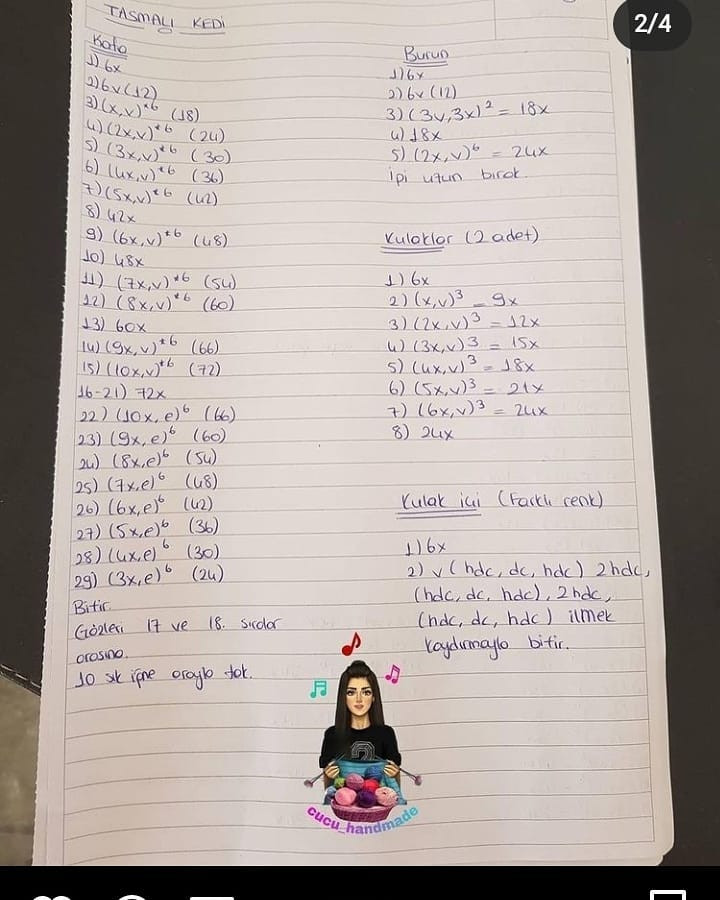 2/4
TASMALI KEDİ
Kafa
1) 6x
2) 6v (12)
3) (x,v)*6 (18)
4) (2x,v)*6 (24)
5) (3x,v)*6 (30)
6) (4x,v)*6 (36)
7) (5x,v)*6 (42)
8) 42x
9) (6x,v)*6 (48)
10) 48x
11) (7x,v)*6 (54)
12) (8x,v)*6 (60)
13) 60x
14) (9x,v)*6 (66)
15) (10x,v)*6 (72)
16-21) 72x
22) (10x,e)6 (66)
23) (9x,e)6 (60)
24) (8x,e)6 (54)
25) (7x,e)6 (48)
26) (6x,e)6 (42)
27) (5x,e)6 (36)
28) (4x,e)6 (30)
29) (3x,e)6 (24)
Bitir.
Gözleri 17 ve 18. sıralar
arasına.
10 sık iğne arayla tak.
Burun
1) 6x
2) 6v (12)
3) (3v,3x)2 = 18x
4) 18x
5) (2x,v)6 = 24x
İpi uzun bırak.
Kulaklar (2 adet)
1) 6x
2) (x,v)3 = 9x
3) (2x,v)3 = 12x
4) (3x,v)3 = 15x
5) (4x,v)3 = 18x
6) (5x,v)3 = 21x
7) (6x,v)3 = 24x
8) 24x
Kulak içi (Farklı renk)
1) 6x
2) v (hdc, dc, hdc) 2hdc,
(hdc, dc, hdc), 2hdc,
(hdc, dc, hdc) ilmek
kaydırmayla bitir.
cucu_handmade